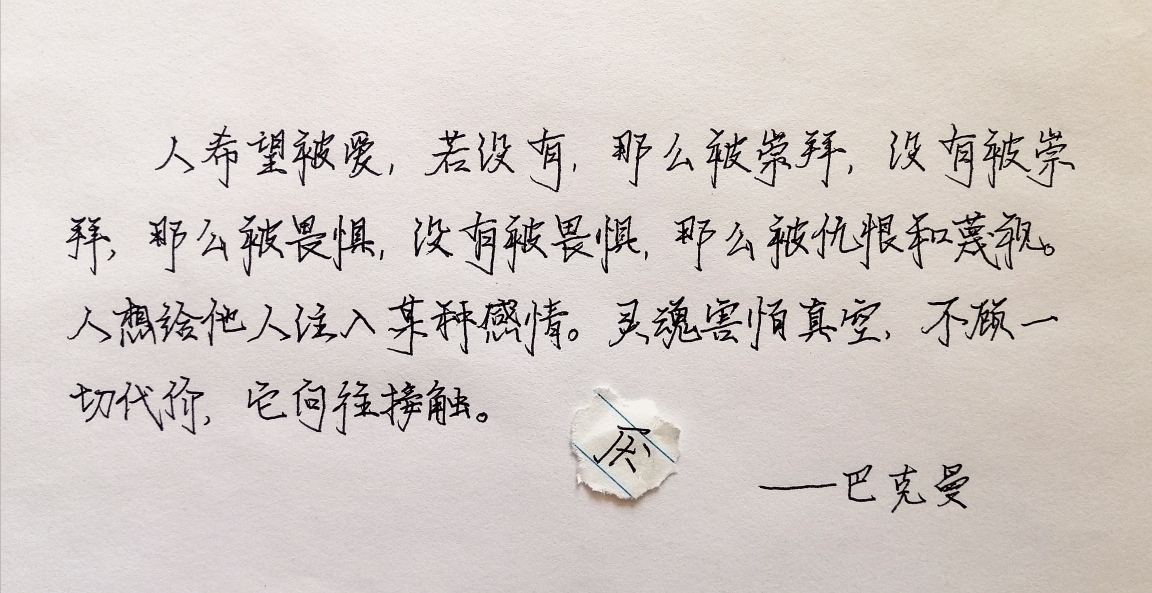 人希望被爱，若没有，那么被崇拜，没有被崇
拜，那么被畏惧，没有被畏惧，那么被仇恨和蔑视。
人想给他人注入某种感情。灵魂害怕真空，不顾一
切代价，它向往接触。
灰
——巴克曼